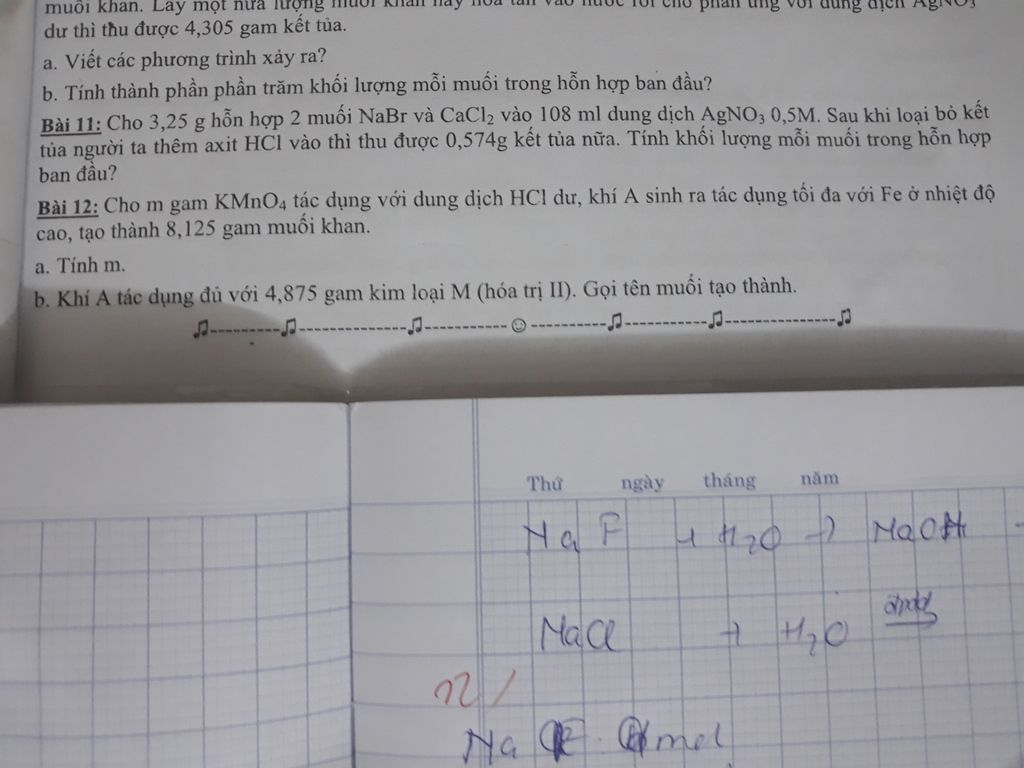 muối khan. Lấy một nửa lượng muối khan này hòa tan vào nước rồi cho phản ứng với dung dịch AgNO3
dư thì thu được 4,305 gam kết tủa.
a. Viết các phương trình xảy ra?
b. Tính thành phần phần trăm khối lượng mỗi muối trong hỗn hợp ban đầu?
Bài 11: Cho 3,25 g hỗn hợp 2 muối NaBr và CaCl2 vào 108 ml dung dịch AgNO3 0,5M. Sau khi loại bỏ kết
tủa người ta thêm axit HCl vào thì thu được 0,574g kết tủa nữa. Tính khối lượng mỗi muối trong hỗn hợp
ban đầu?
Bài 12: Cho m gam KMnO4 tác dụng với dung dịch HCl dư, khí A sinh ra tác dụng tối đa với Fe ở nhiệt độ
cao, tạo thành 8,125 gam muối khan.
a. Tính m.
b. Khí A tác dụng đủ với 4,875 gam kim loại M (hóa trị II). Gọi tên muối tạo thành.
♫---------♫--------------♫-----------☺----------♫-----------♫---------------♫
Thứ ngày tháng năm
Na F + H2O → NaOH
NaCl + H2O
12 /
Na mol